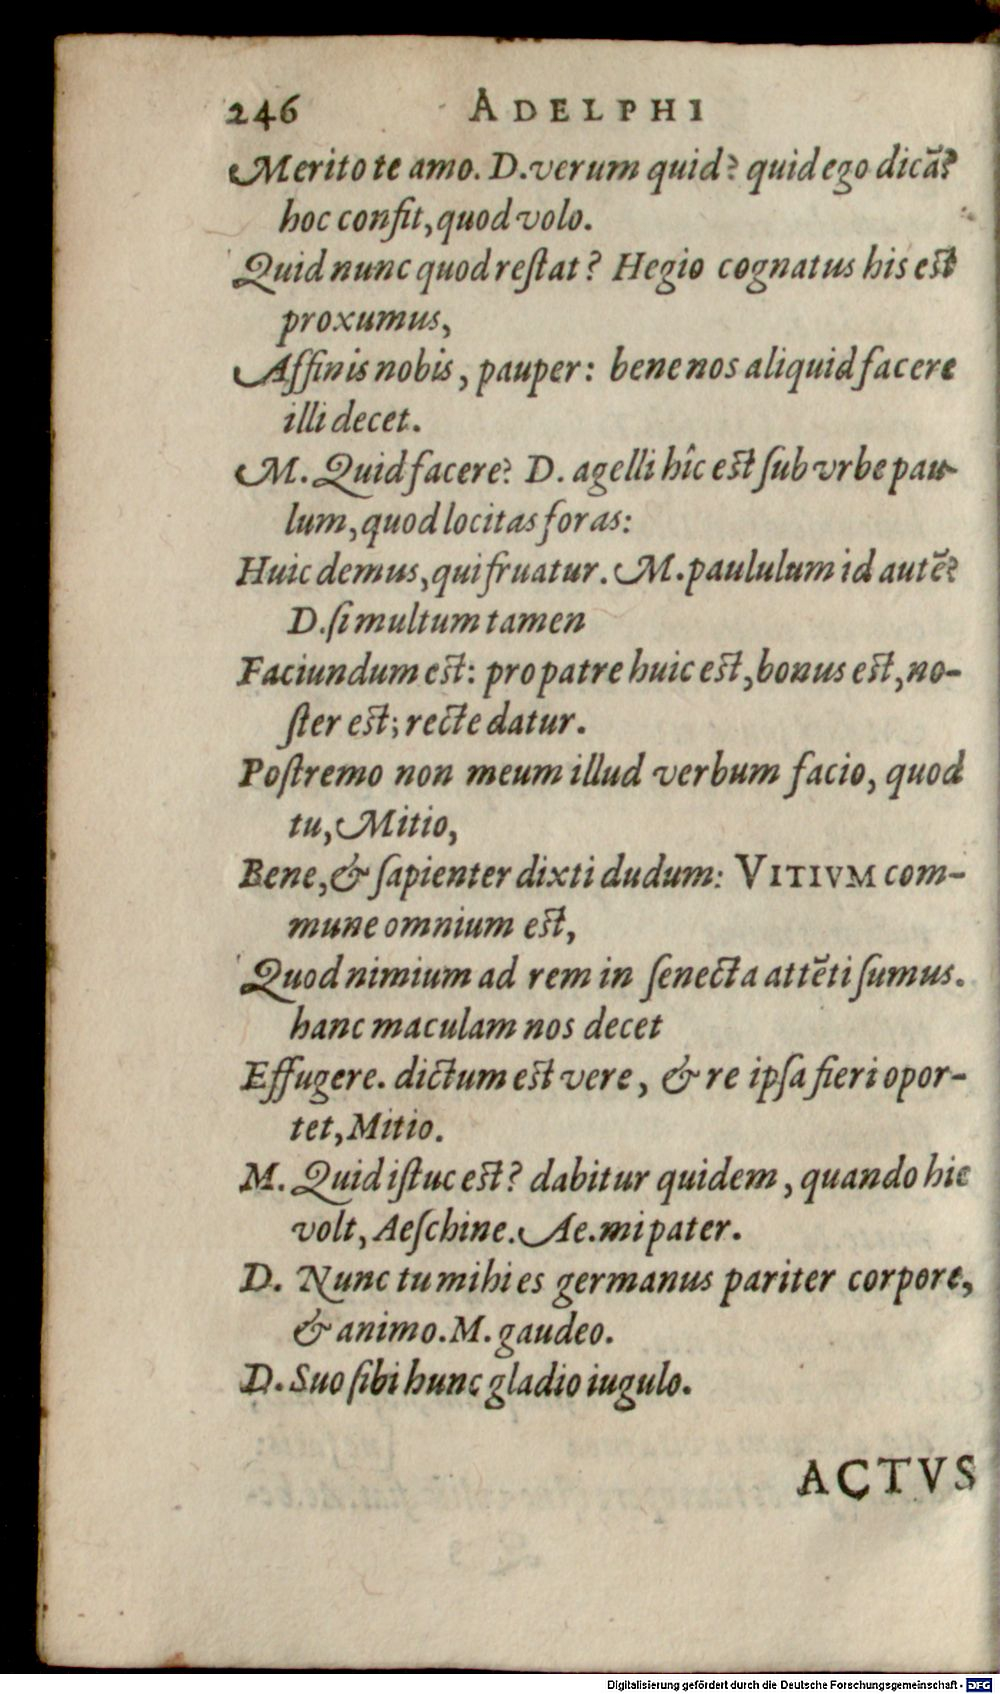 246 ADELPHI
Merito te amo. D. verum quid? quid ego dicā?
hoc confit, quod volo.
Quid nunc quod reſtat? Hegio cognatus his eſt
proxumus,
Affinis nobis, pauper: bene nos aliquid facere
illi decet.
M. Quid facere? D. agelli hîc eſt ſub vrbe pau-
lum, quod locitas foras:
Huic demus, qui fruatur. M. paululum id autē?
D. ſi multum tamen
Faciundum eſt: pro patre huic eſt, bonus eſt, no-
ſter eſt; recte datur.
Poſtremo non meum illud verbum facio, quod
tu, Mitio,
Bene, & ſapienter dixti dudum: VITIVM com-
mune omnium eſt,
Quod nimium ad rem in ſenecta attēti ſumus.
hanc maculam nos decet
Effugere. dictum eſt vere, & re ipſa fieri opor-
tet, Mitio.
M. Quid iſtuc eſt? dabitur quidem, quando hic
volt, Aeſchine. Ae. mi pater.
D. Nunc tu mihi es germanus pariter corpore,
& animo. M. gaudeo.
D. Suo ſibi hunc gladio iugulo.
ACTVS
Digitalisierung gefördert durch die Deutsche Forschungsgemeinschaft - DFG